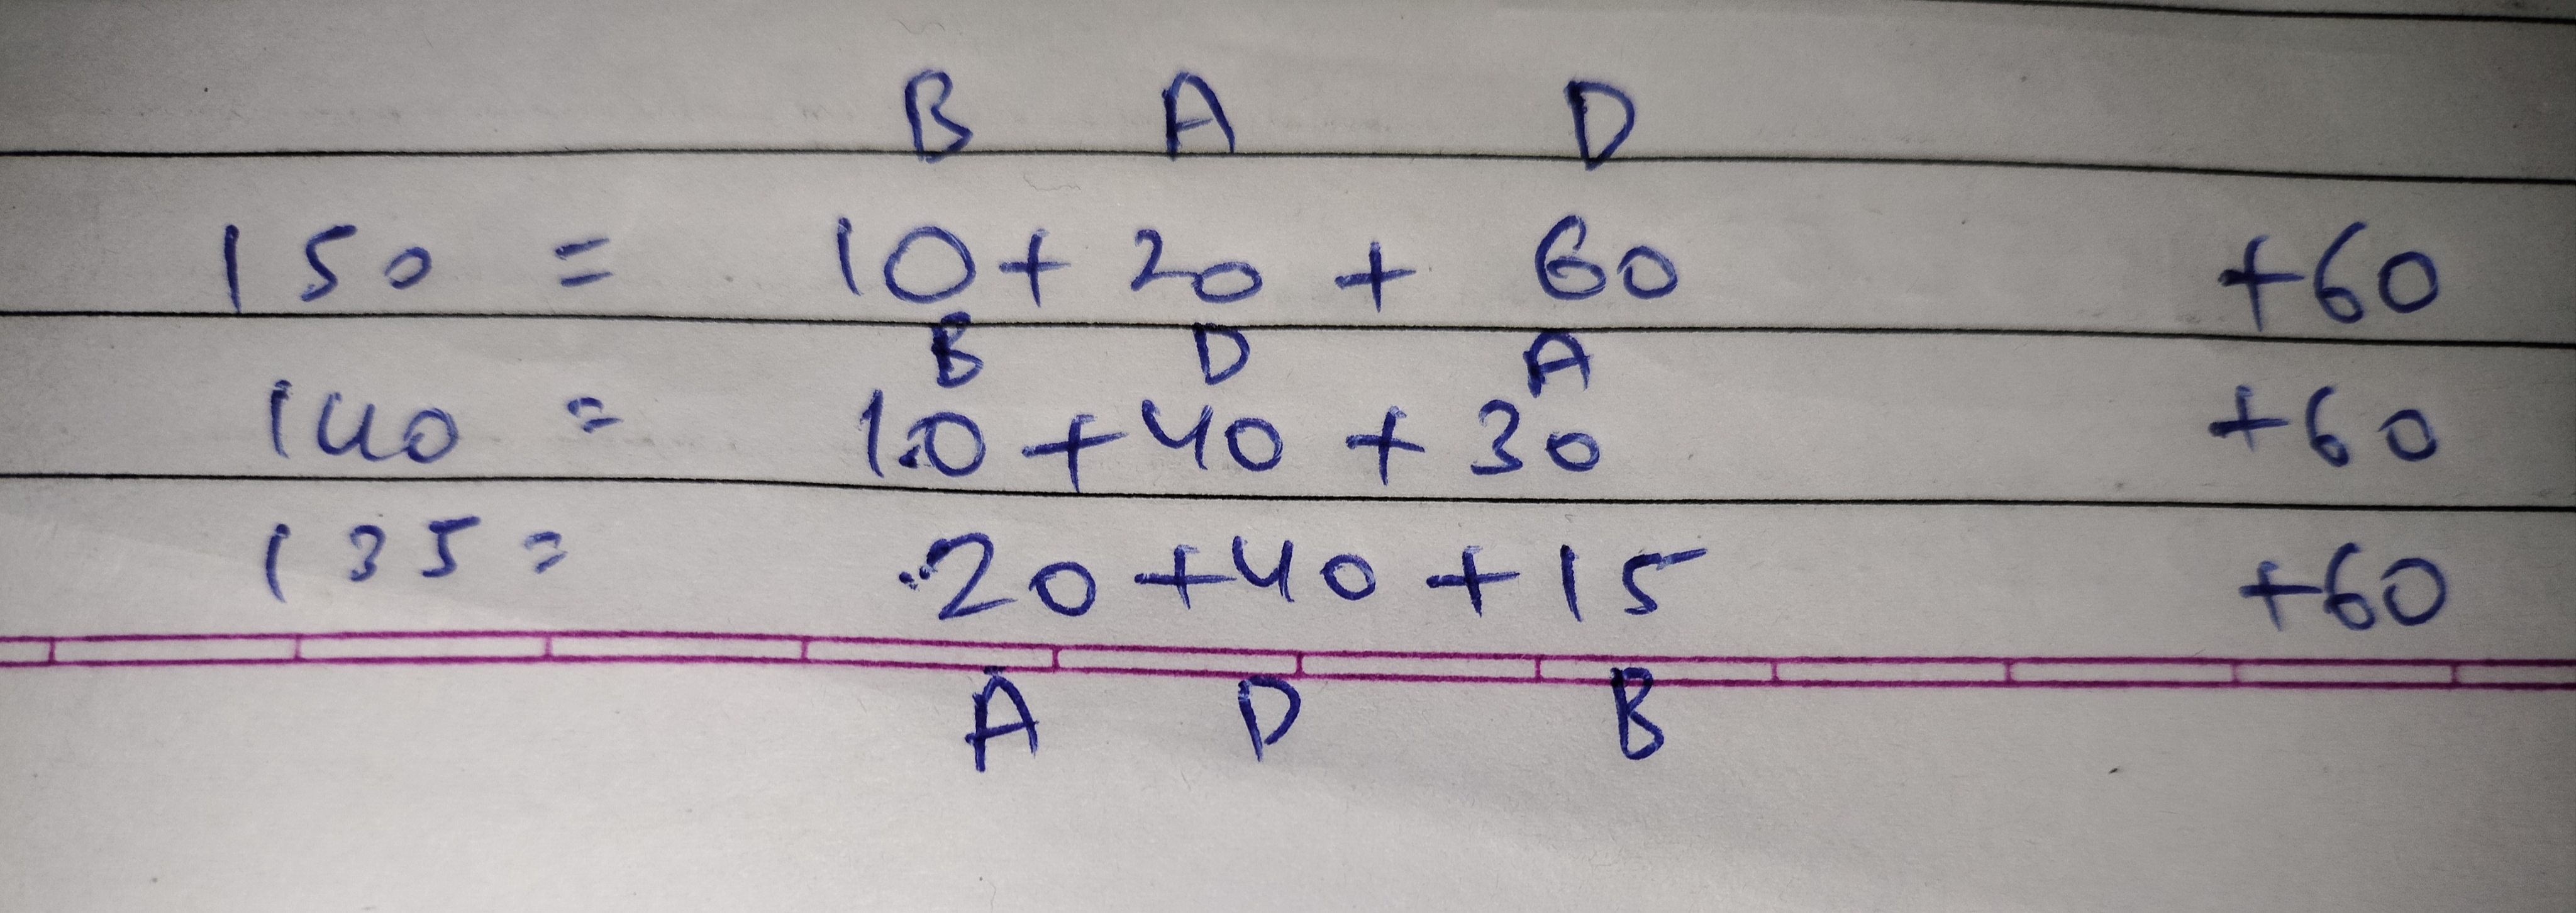 B A D
150 = 10 + 20 + 60 +60
B D A
140 = 10 + 40 + 30 +60
135 = 20 + 40 + 15 +60
A D B